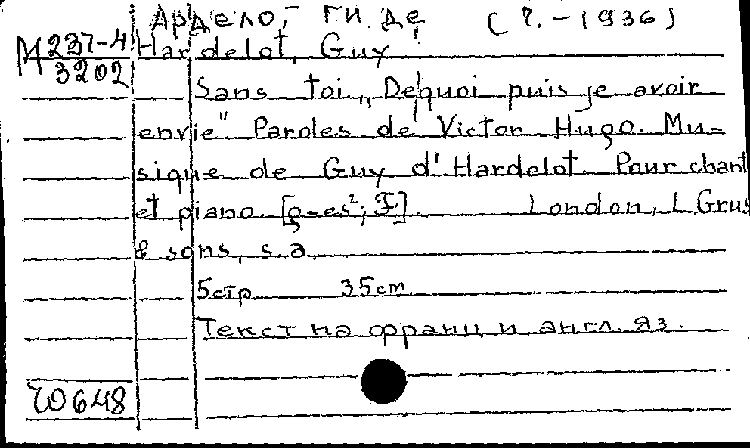 Ардело, Ги де (?.-1936)
М 237-4 Hardelot, Guy
3202
Sans toi „Dequoi puis je avoir
envie" Paroles de Victor Hugo. Mu-
sique de Guy d'Hardelot Pour chant
et piano [g-es²; F]. London, L Grus
& sons, s.a.
5стр 35cm
Текст на франц и англ. яз.
648